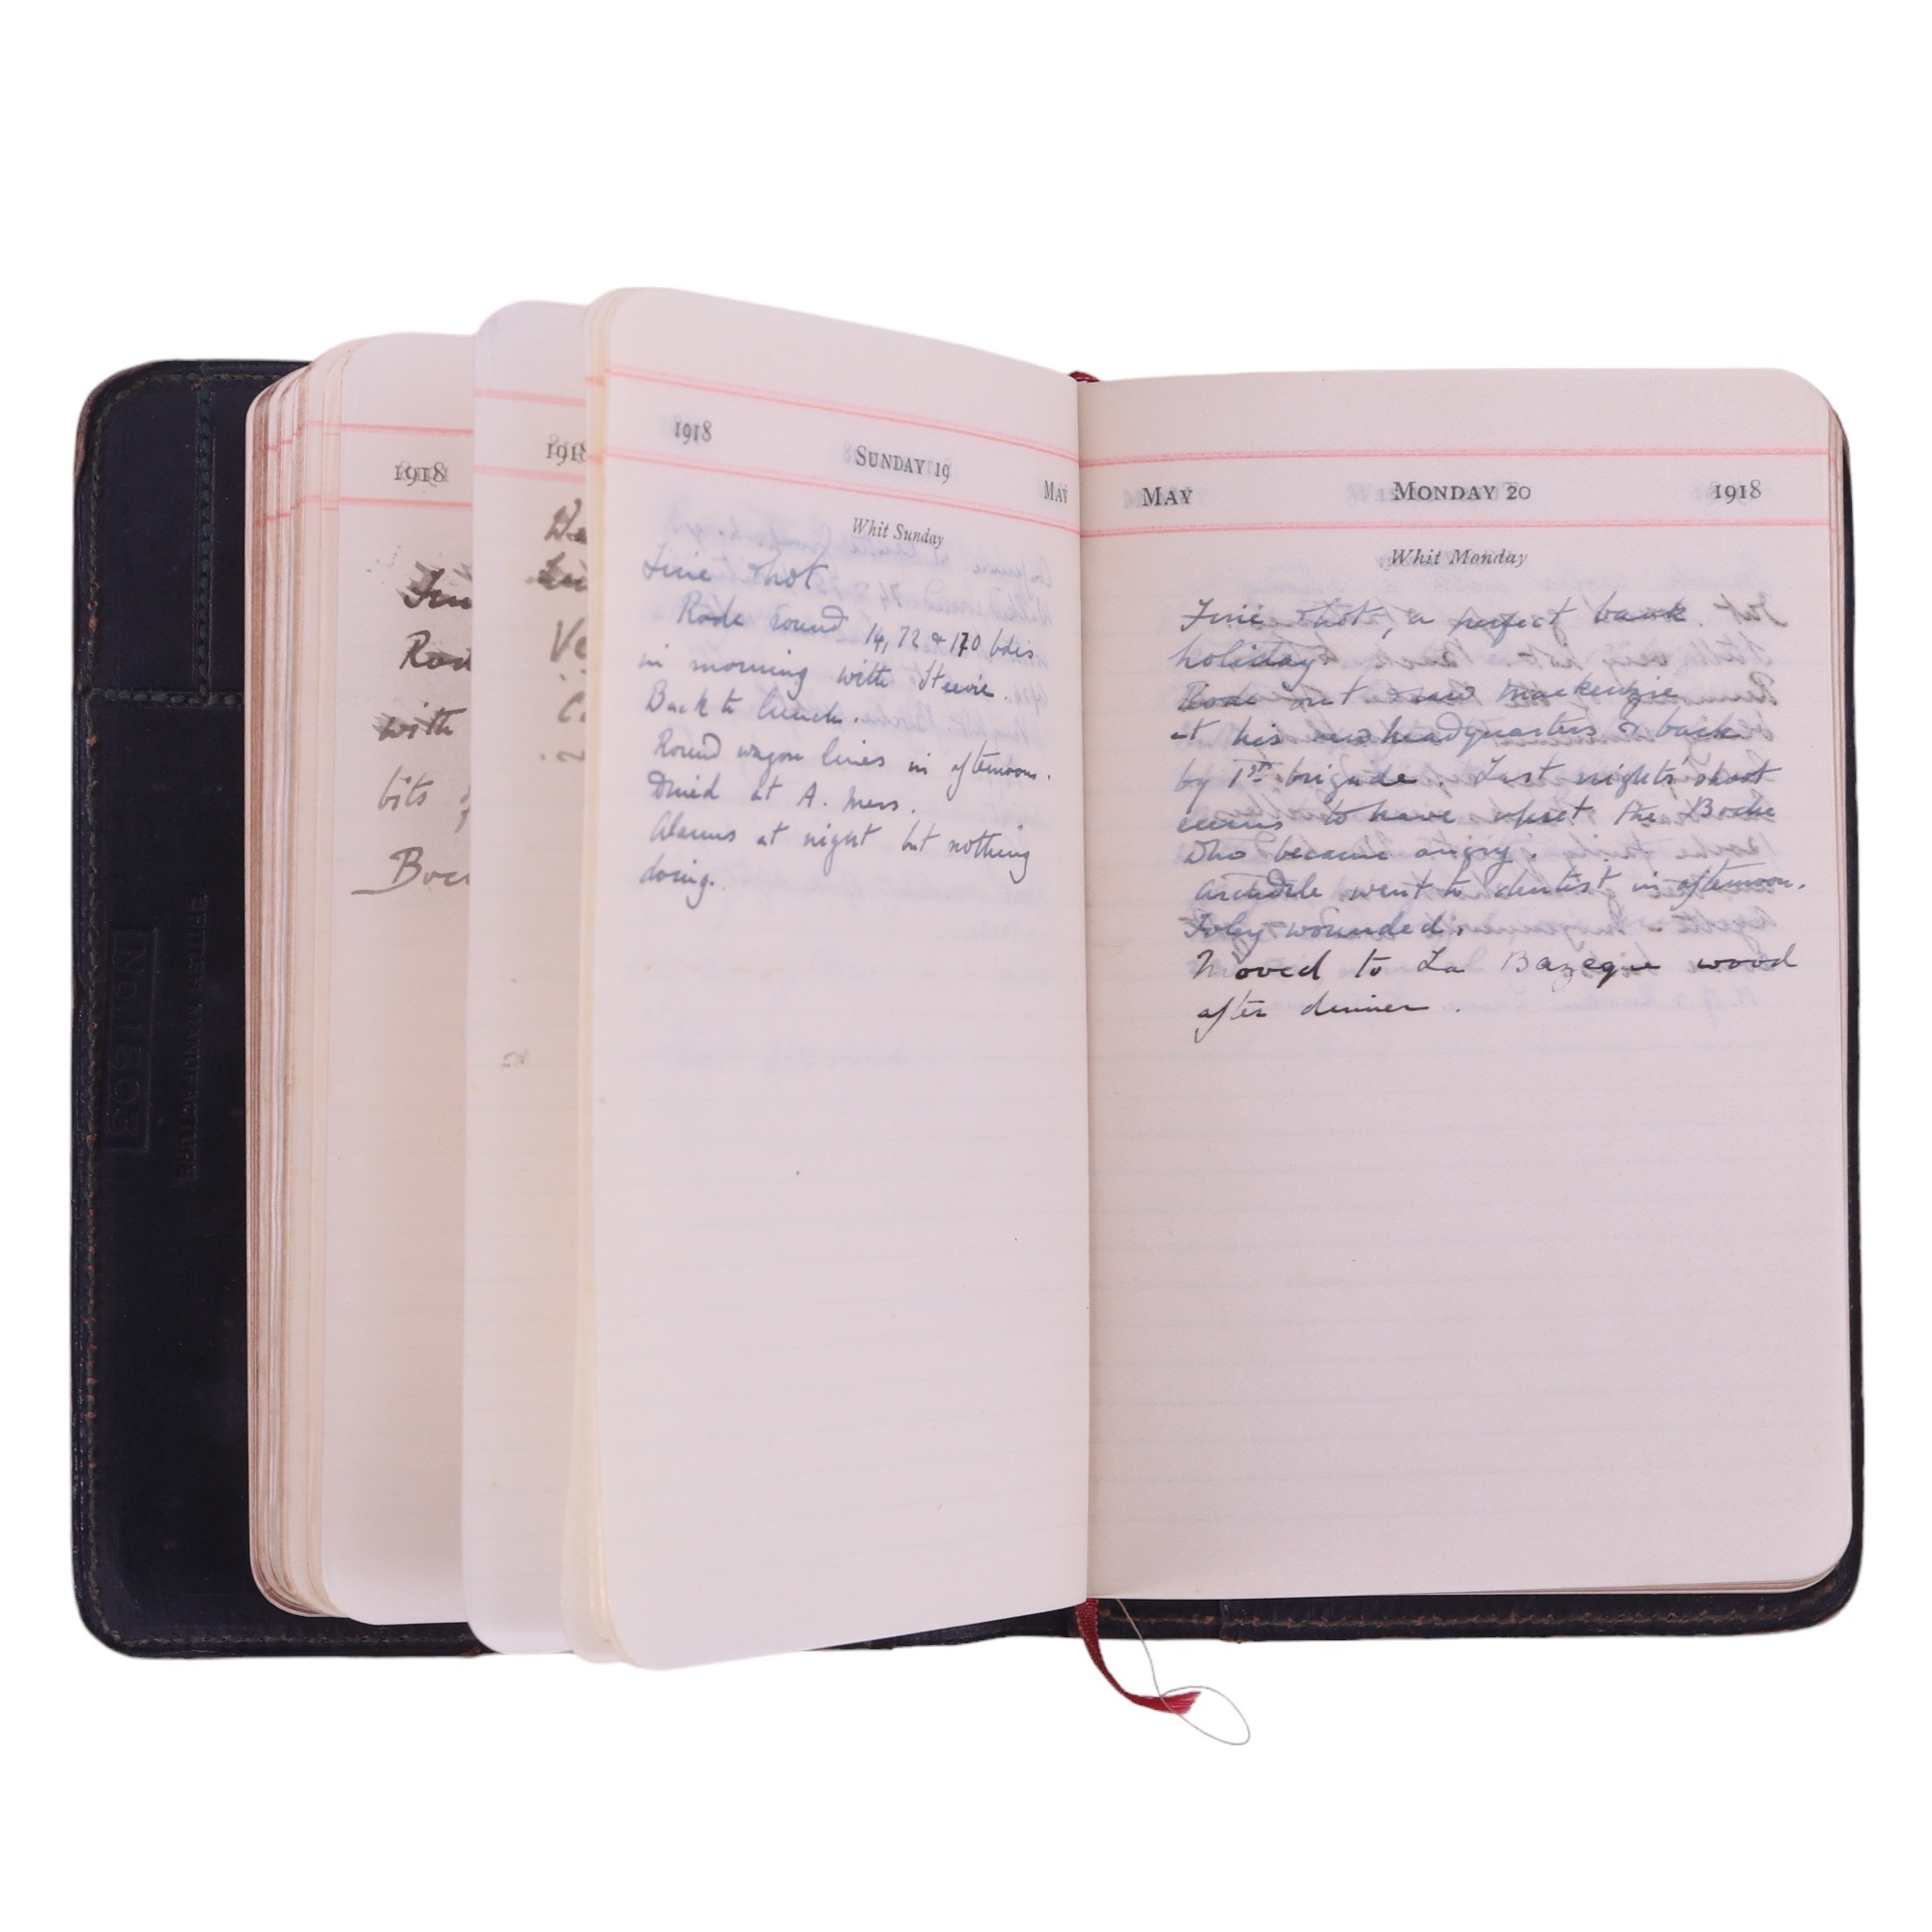 No. 1803
BRITISH MANUFACTURE
1918
Rod
with
bits
Boc
1918
Ve
1918 SUNDAY 19 MAY
Whit Sunday
Fine & hot
Rode round 14, 72 & 170 bdes
in morning with Steevie.
Back to lunch.
Round wagon lines in afternoon.
Dined at A. Mess.
Alarms at night but nothing
doing.
MAY MONDAY 20 1918
Whit Monday
Fine & hot, a perfect bank
holiday
Rode out & saw Mackenzie
at his new headquarters & back
by 1st brigade. Last nights' shoot
seems to have upset the Boche
who became angry.
went to dentist in afternoon.
Foley wounded.
Moved to La Bazeque wood
after dinner.